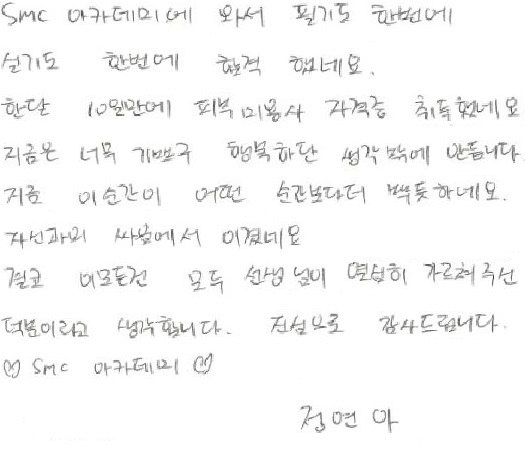 Smc 아카데미에 와서 필기도 한번에
실기도 한번에 합격 했네요.
한달 10일만에 피부미용사 자격증 취득했네요
지금은 너무 기쁘구 행복하단 생각밖에 안듭니다.
지금 이순간이 어떤 순간보다더 뿌듯하네요.
자신과의 싸움에서 이겼네요
결코 이모든건 모두 선생님이 열심히 가르쳐주신
덕분이라고 생각합니다. 진심으로 감사드립니다.
♡ Smc 아카데미 ♡
정연아